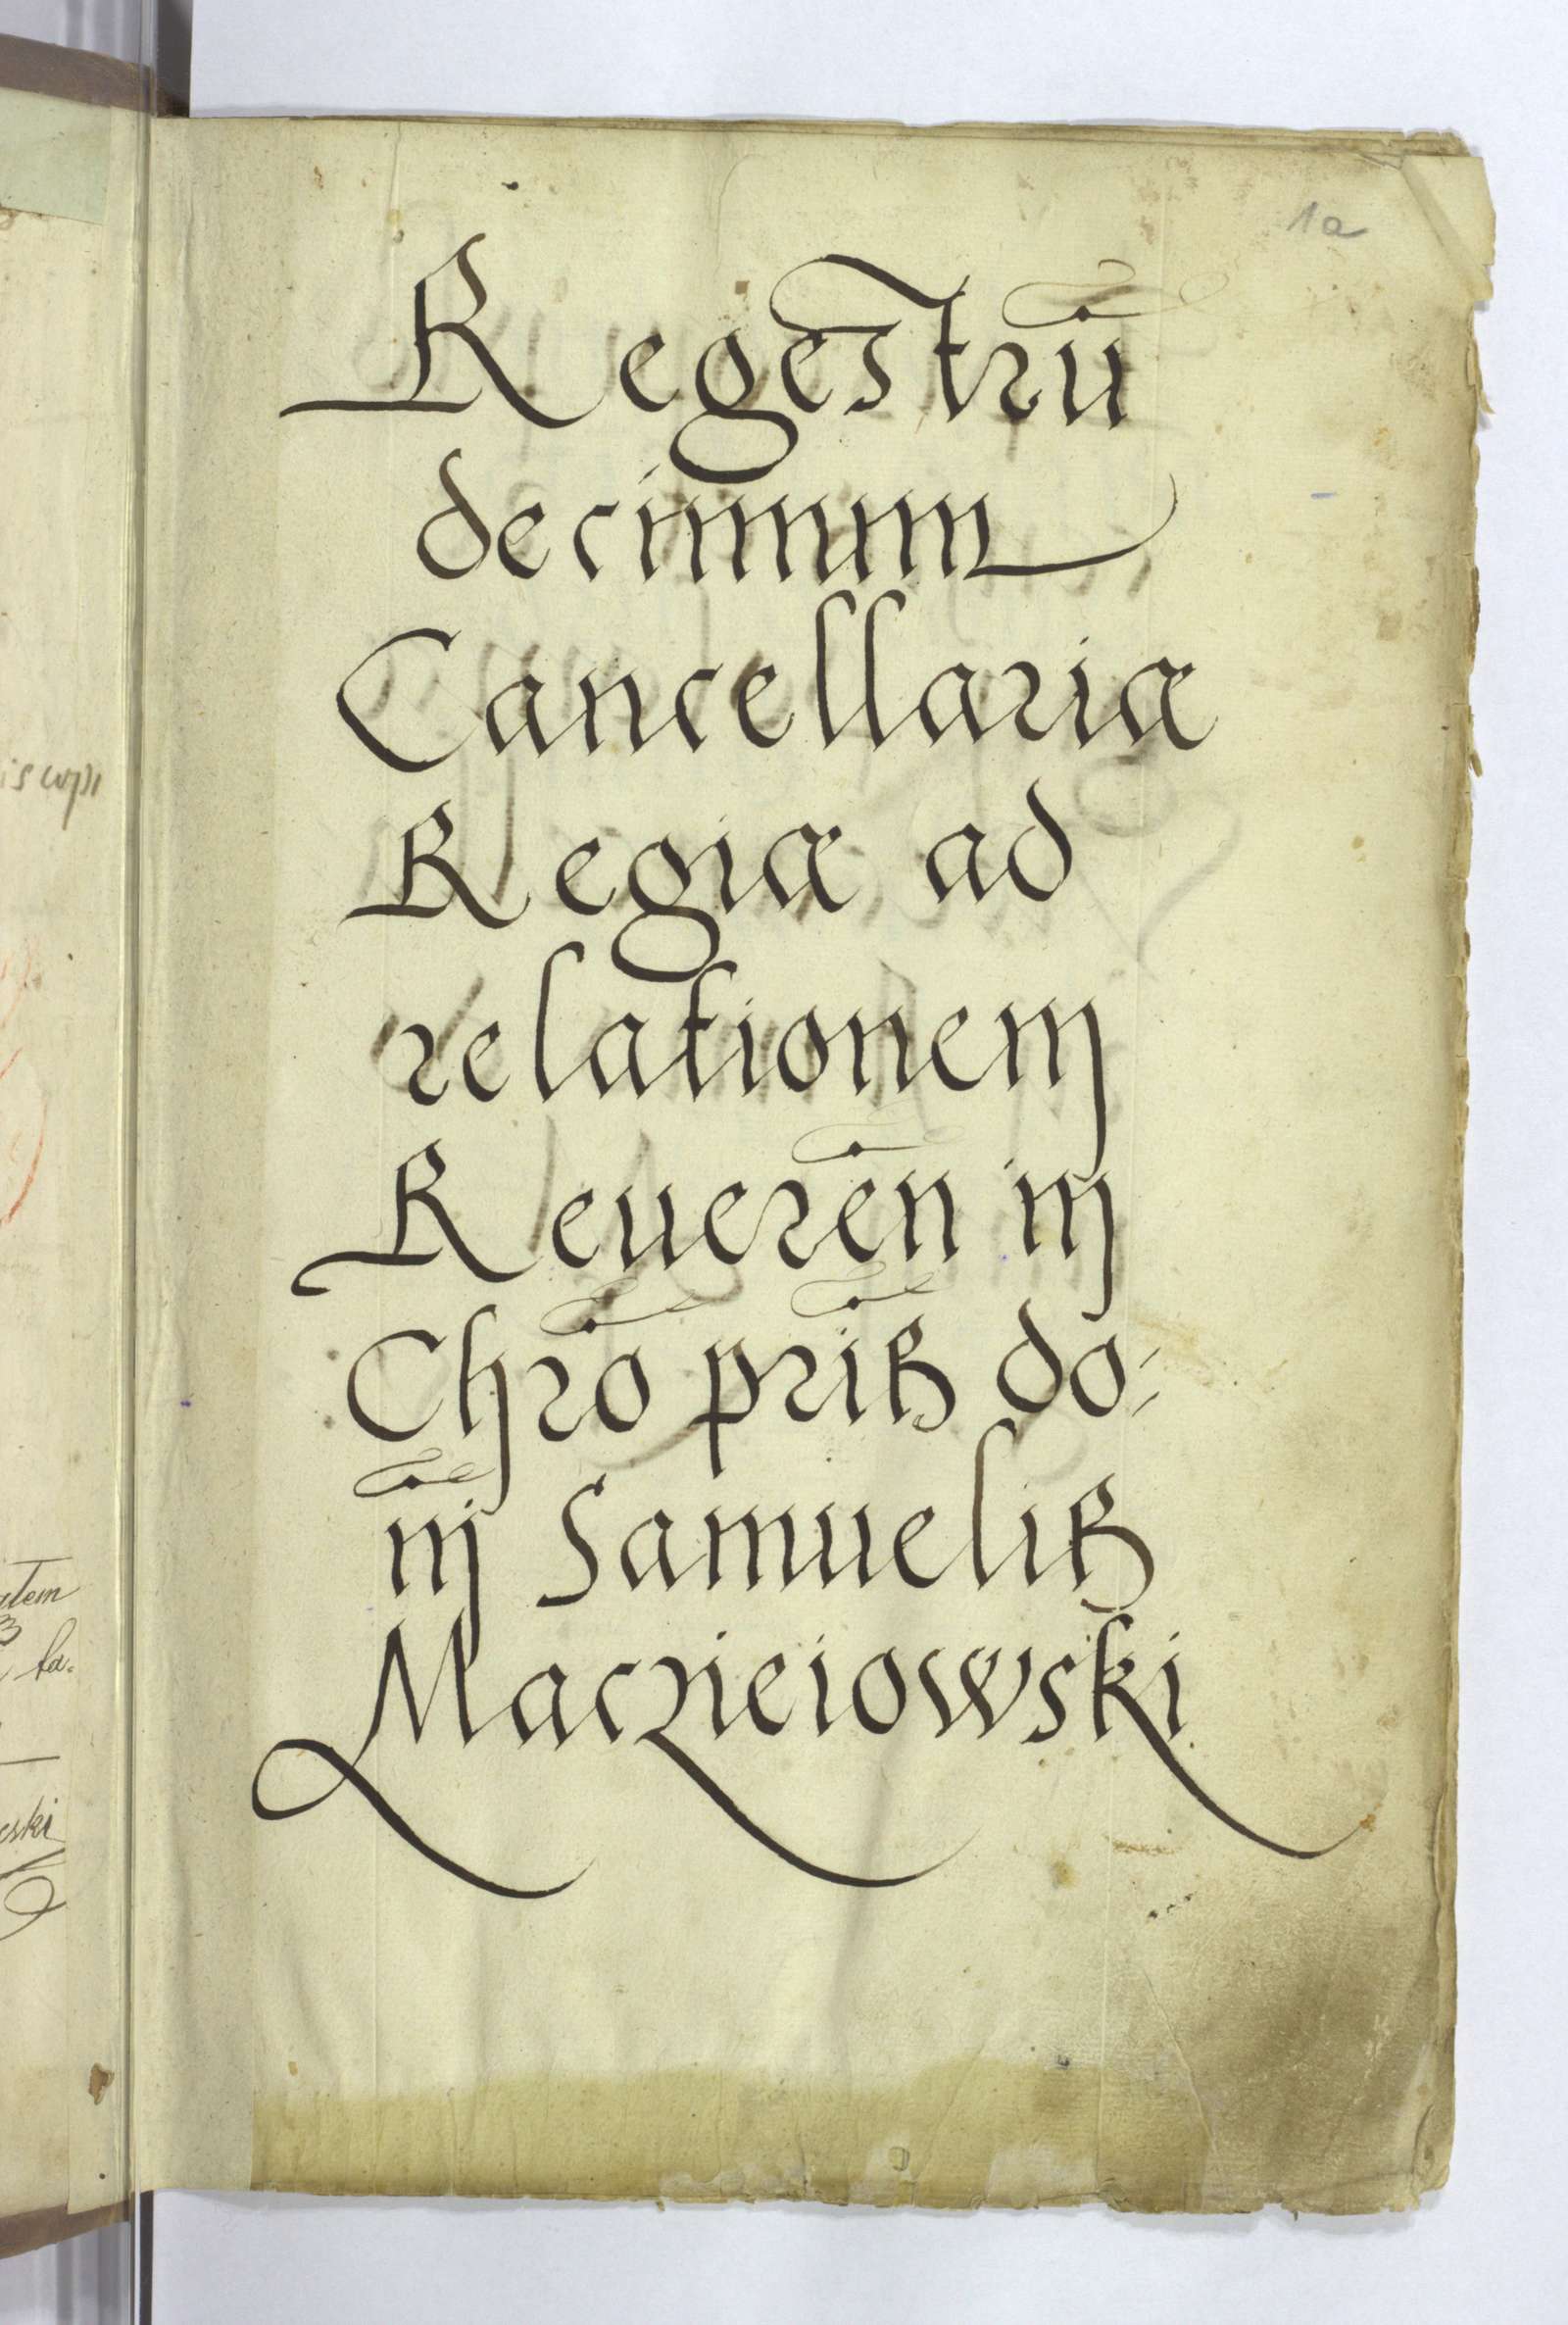 1a
Regestrū
decimum
Cancellariæ
Regiæ ad
relationem
Reuerēn in
Chrō prīß do:
nj̄ Samueliß
Maczieiowski
iscopi
atem
eski